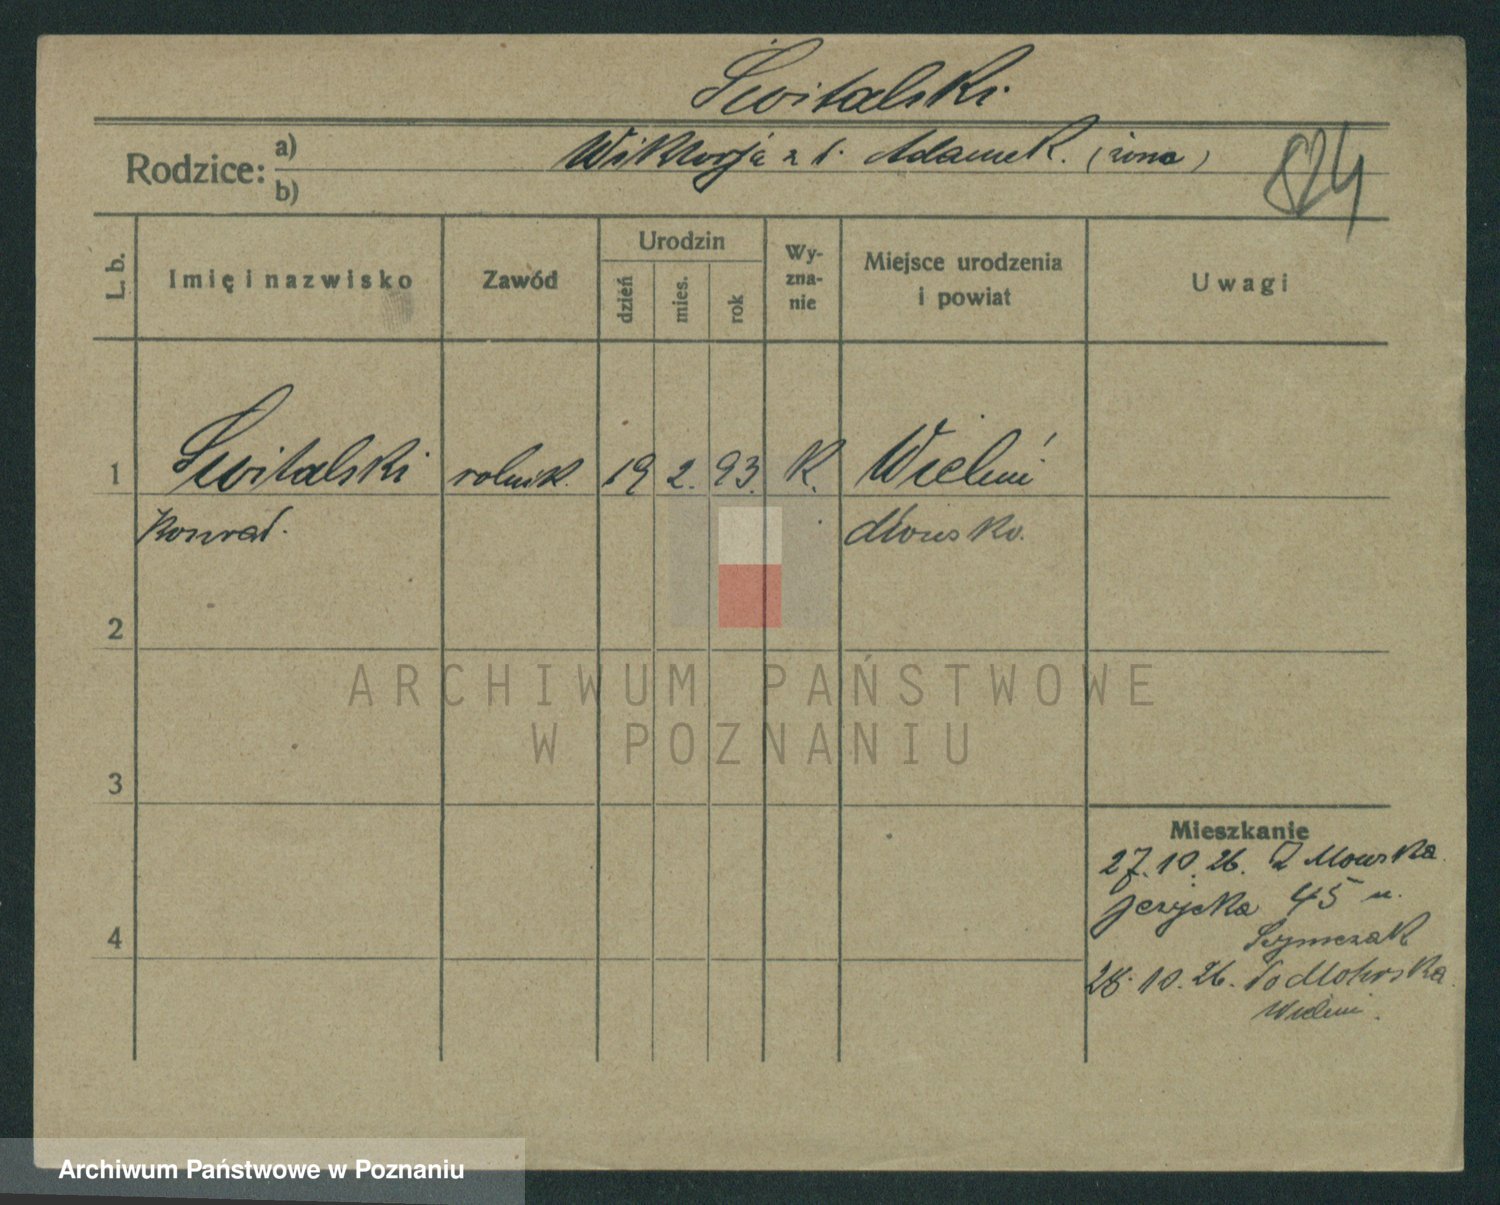 Świtalski
Rodzice: a) Wiktorja z d. Adamek. (żona)
b)
824
L. b. Imię i nazwisko Zawód Urodzin dzień mies. rok Wy-zna-nie Miejsce urodzenia i powiat Uwagi
1 Świtalski rolnik. 19 2. 93. K.
Konrad.
2
ARCHIWUM PAŃSTWOWE
W POZNANIU
3
Mieszkanie
27.10.26.
jeżycka 45 u.
4
Szymczak
28.10.26.
Archiwum Państwowe w Poznaniu